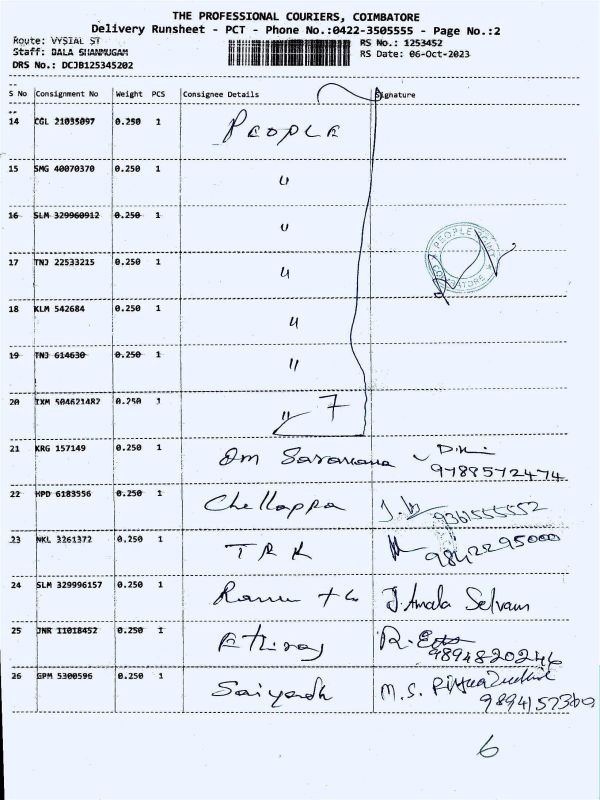 THE PROFESSIONAL COURIERS, COIMBATORE
Delivery Runsheet - PCT - Phone No.:0422-3505555 - Page No.:2
Route: VYSIAL ST RS No.: 1253452
Staff: BALA SHANMUGAM RS Date: 06-Oct-2023
DRS No.: DCJB125345202
S No Consignment No Weight PCS Consignee Details Signature
14 CGL 21035097 0.250 1 PEOPLE
15 SMG 40070370 0.250 1 "
16 SLM 329960912 0.250 1 "
PEOPLE
COIMBATORE
17 TNJ 22533215 0.250 1 "
18 KLM 542684 0.250 1 "
19 TNJ 614630 0.250 1 "
20 TXM 504621482 0.250 1 " 7
21 KRG 157149 0.250 1 Om Saravana
9788572474
22 HPD 6183556 0.250 1 Chellappa 9361555552
23 NKL 3261372 0.250 1 TRK 9842295000
24 SLM 329996157 0.250 1 J. Amala Selvam
25 JNR 11018452 0.250 1 Ethiraj R.
9894820246
26 GPM 5300596 0.250 1 M.S.
6